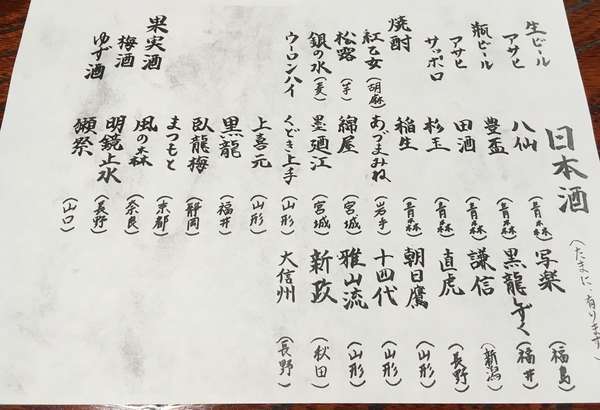 生ビール
アサヒ
瓶ビール
アサヒ
サッポロ
焼酎
紅乙女(胡麻)
松露(芋)
銀の水(麦)
ウーロンハイ
果実酒
梅酒
ゆず酒
日本酒
八仙(青森)
豊盃(青森)
田酒(青森)
杉玉(青森)
稲生(青森)
あづまみね(岩手)
綿屋(宮城)
墨廼江(宮城)
くどき上手(山形)
上喜元(山形)
黒龍(福井)
臥龍梅(静岡)
まつもと(京都)
風の森(奈良)
明鏡止水(長野)
獺祭(山口)
(たまに、有ります)
写楽(福島)
黒龍しずく(福井)
謙信(新潟)
直虎(長野)
朝日鷹(山形)
十四代(山形)
雅山流(山形)
新政(秋田)
大信州(長野)